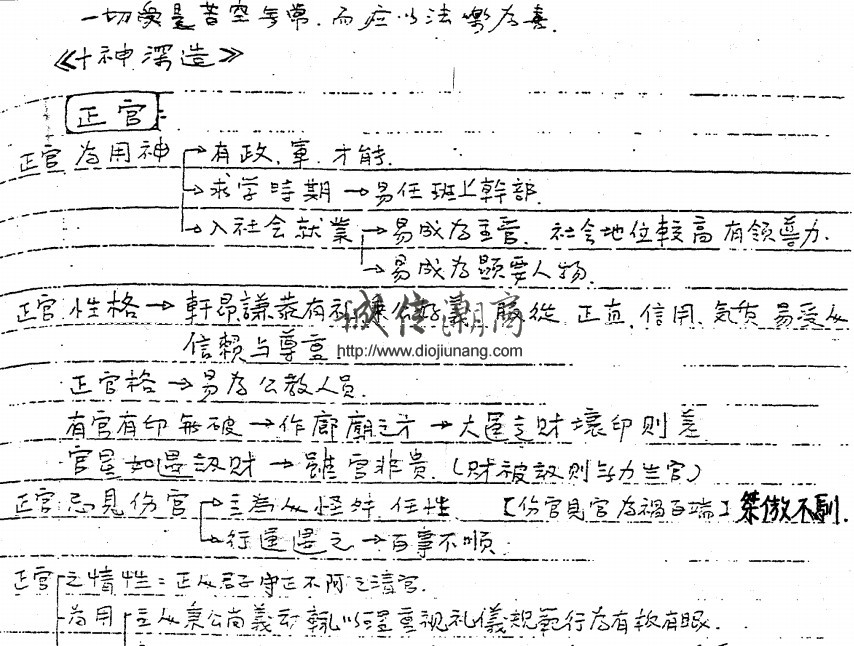 一切受是苦空無常.而应以法樂為喜.
《十神深造》
正官:
正官為用神→有政.軍.才能.
→求学時期→易任班上幹部.
→入社会就業→易成為主管.社会地位較高有領導力.
→易成為顯要人物.
正官性格→軒昂謙恭有礼廉公好義.服從.正直.信用.気质易受人
信賴与尊重.
正官格→易為公教人員.
有官有印無破→作廊廟之才→大運走財壞印則差
官星如遇劫財→雖官非贵.(財被劫則无力生官)
正官忌見伤官→主為人怪癖.任性.【伤官見官為禍百端】桀傲不馴.
→行運遇之→百事不順.
正官之情性:正人君子守正不阿之清官.
為用 主人秉公尚義 重視礼儀規範行為有板有眼.
诚信潮商
http://www.diojiunang.com